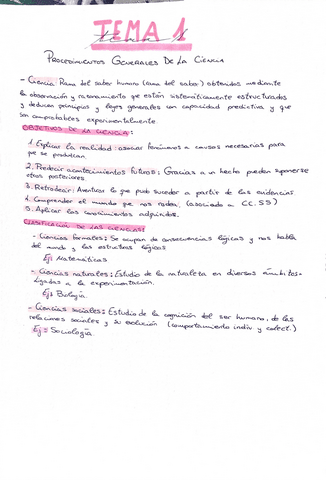 TEMA 1
PROCEDIMIENTOS GENERALES DE LA CIENCIA
- Ciencia: Rama del saber humano (rama del saber) obtenidos mediante
la observación y razonamiento que están sistemáticamente estructurados
y deducen principios y leyes generales con capacidad predictiva y que
son comprobables experimentalmente.
OBJETIVOS DE LA CIENCIA:
1. Explicar la realidad: asociar fenómenos a causas necesarias para
que se produzcan.
2. Predecir acontecimientos futuros: Gracias a un hecho pueden suponerse
otros posteriores.
3. Retrodecir: Aventurar lo que pudo suceder a partir de las evidencias.
4. Comprender el mundo que nos rodea. (asociado a CC.SS)
5. Aplicar los conocimientos adquiridos.
CLASIFICACIÓN DE LAS CIENCIAS:
- Ciencias formales: Se ocupan de consecuencias lógicas y nos habla
del mundo y las estructuras lógicas
Ej: Matemáticas
- Ciencias naturales: Estudio de la naturaleza en diversos ámbitos-
Ligadas a la experimentación.
Ej: Biología.
- Ciencias sociales: Estudio de la cognición del ser humano, de las
relaciones sociales y su evolución (comportamiento indiv y colect.)
Ej: Sociología.